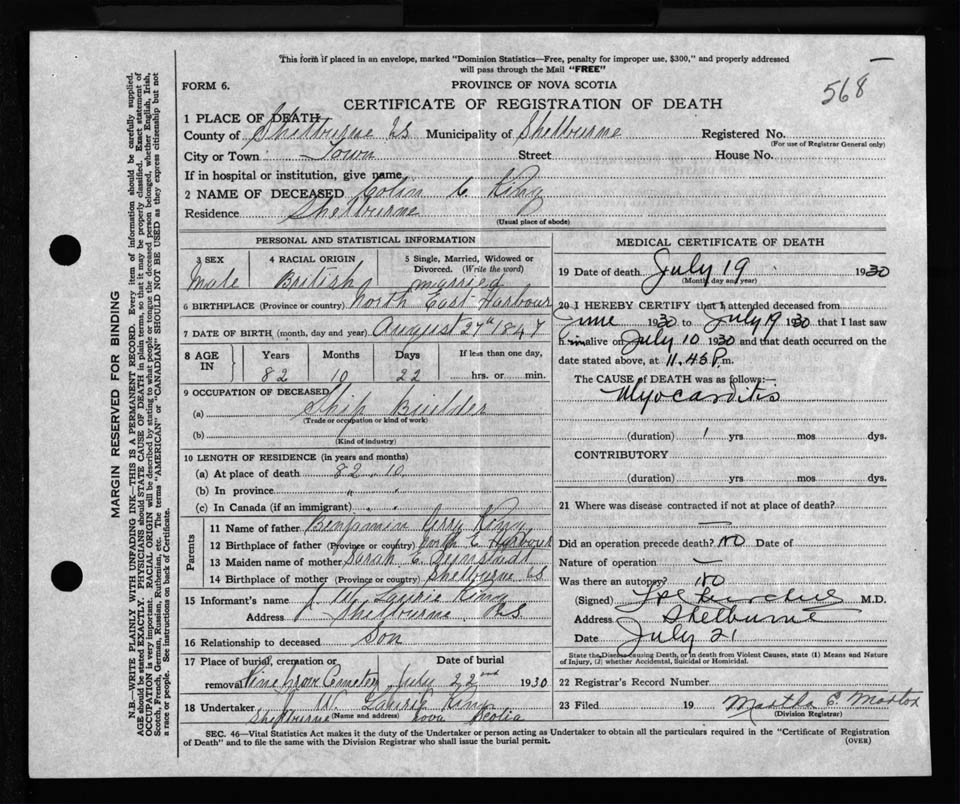 This form if placed in an envelope, marked "Dominion Statistics—Free, penalty for improper use, $300," and properly addressed
will pass through the Mail "FREE"
568
FORM 6.
PROVINCE OF NOVA SCOTIA
CERTIFICATE OF REGISTRATION OF DEATH
1 PLACE OF DEATH
County of Shelburne NS Municipality of Shelburne Registered No.
(For use of Registrar General only)
City or Town Town Street House No.
If in hospital or institution, give name
2 NAME OF DECEASED Colin C King
Residence Shelburne
(Usual place of abode)
PERSONAL AND STATISTICAL INFORMATION
3 SEX 4 RACIAL ORIGIN 5 Single, Married, Widowed or
Divorced. (Write the word)
Male British married
6 BIRTHPLACE (Province or country) North East Harbour
7 DATE OF BIRTH (month, day and year) August 27th 1847
8 AGE IN Years Months Days If less than one day,
82 10 22 hrs. or min.
9 OCCUPATION OF DECEASED
(a) Ship Builder
(Trade or occupation or kind of work)
(b)
(Kind of industry)
10 LENGTH OF RESIDENCE (in years and months)
(a) At place of death 82 . 10
(b) In province " "
(c) In Canada (if an immigrant) " "
Parents
11 Name of father Benjamin Perry King
12 Birthplace of father (Province or country) North E Harbour
13 Maiden name of mother Sarah E.
14 Birthplace of mother (Province or country) Shelburne NS
15 Informant's name W. Laurie King
Address Shelburne N.S.
16 Relationship to deceased Son
17 Place of burial, cremation or Date of burial
removal Pine Grove Cemetery July 22nd 1930
18 Undertaker W. Laurie King
Shelburne (Name and address) Nova Scotia
MEDICAL CERTIFICATE OF DEATH
19 Date of death July 19 1930
(Month, day and year)
20 I HEREBY CERTIFY that I attended deceased from
June 1930 to July 19 1930 that I last saw
him alive on July 10 1930 and that death occurred on the
date stated above, at 11.45 P.m.
The CAUSE OF DEATH was as follows:—
Myocarditis
(duration) 1 yrs mos dys.
CONTRIBUTORY
(duration) yrs mos dys.
21 Where was disease contracted if not at place of death?
—
Did an operation precede death? No Date of
Nature of operation —
Was there an autopsy? No
(Signed) M.D.
Address Shelburne
Date July 21
State the Disease causing Death, or in death from Violent Causes, state (1) Means and Nature
of Injury, (2) whether Accidental, Suicidal or Homicidal.
22 Registrar's Record Number
23 Filed 19 Martha E.
(Division Registrar)
SEC. 46—Vital Statistics Act makes it the duty of the Undertaker or person acting as Undertaker to obtain all the particulars required in the "Certificate of Registration
of Death" and to file the same with the Division Registrar who shall issue the burial permit.
(OVER)
MARGIN RESERVED FOR BINDING
N.B.—WRITE PLAINLY WITH UNFADING INK—THIS IS A PERMANENT RECORD. Every item of information should be carefully supplied.
AGE should be stated EXACTLY. PHYSICIANS should STATE CAUSE OF DEATH in plain terms, so that it may be properly classified. Exact statement of
OCCUPATION is very important. RACIAL ORIGIN will be described by stating to what people or tongue the deceased person belonged, whether English, Irish,
Scotch, French, German, Russian, Ruthenian, etc. The terms "AMERICAN" or "CANADIAN" SHOULD NOT BE USED as they express citizenship but not
a race or people. See instructions on back of Certificate.